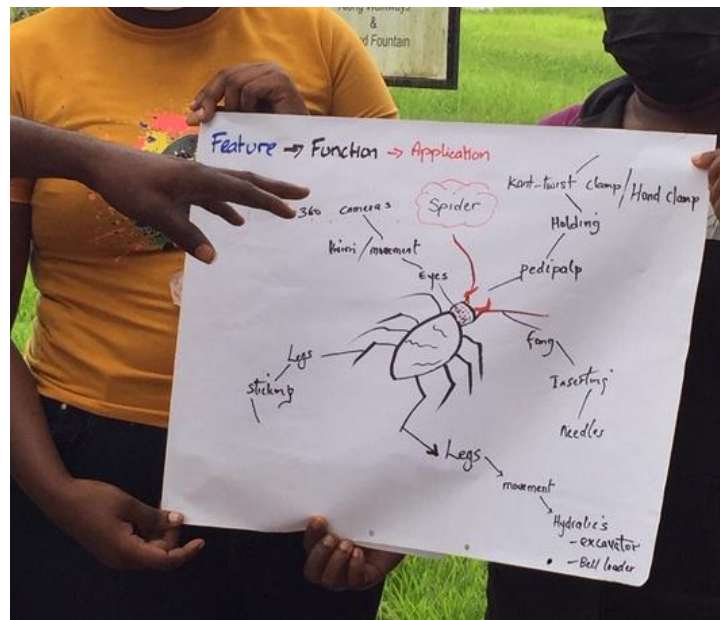 & 
d Fountain
Feature → Function → Application
Spider
360 cameras
/movement
Eyes
Kant-twist clamp/Hand clamp
Holding
pedipalp
fang
Inserting
Needles
Legs
Sticking
Legs
movement
Hydralic's
- excavator
- Bell loader